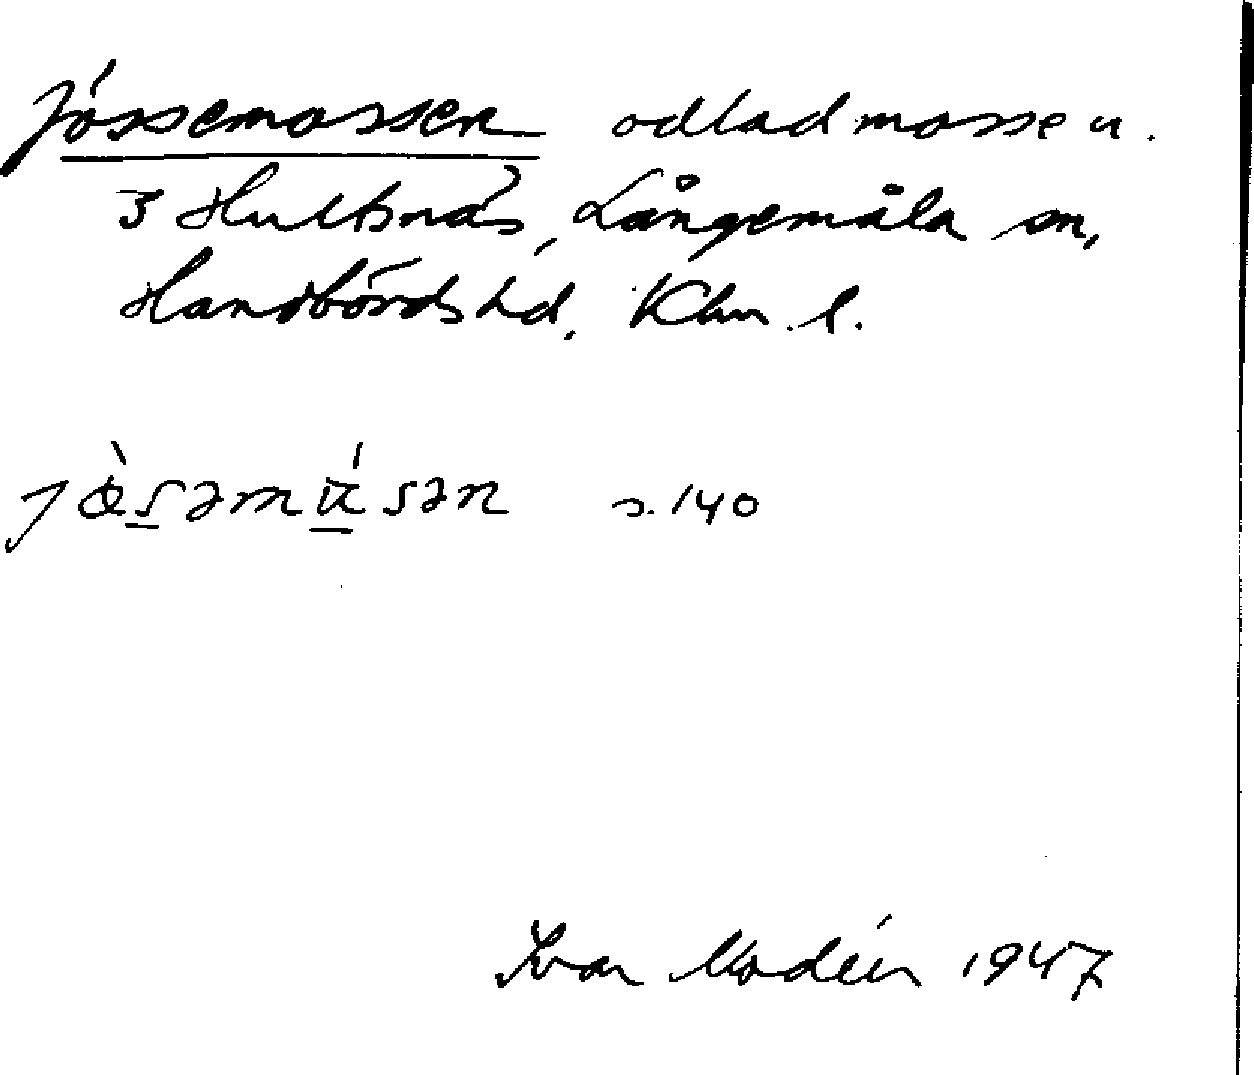 Jössemossen odlad mosse u.
3 Hultsnäs, Långemåla sn,
Handbörds hd. Klm. l.
s. 140
Ivar Modéer 1947